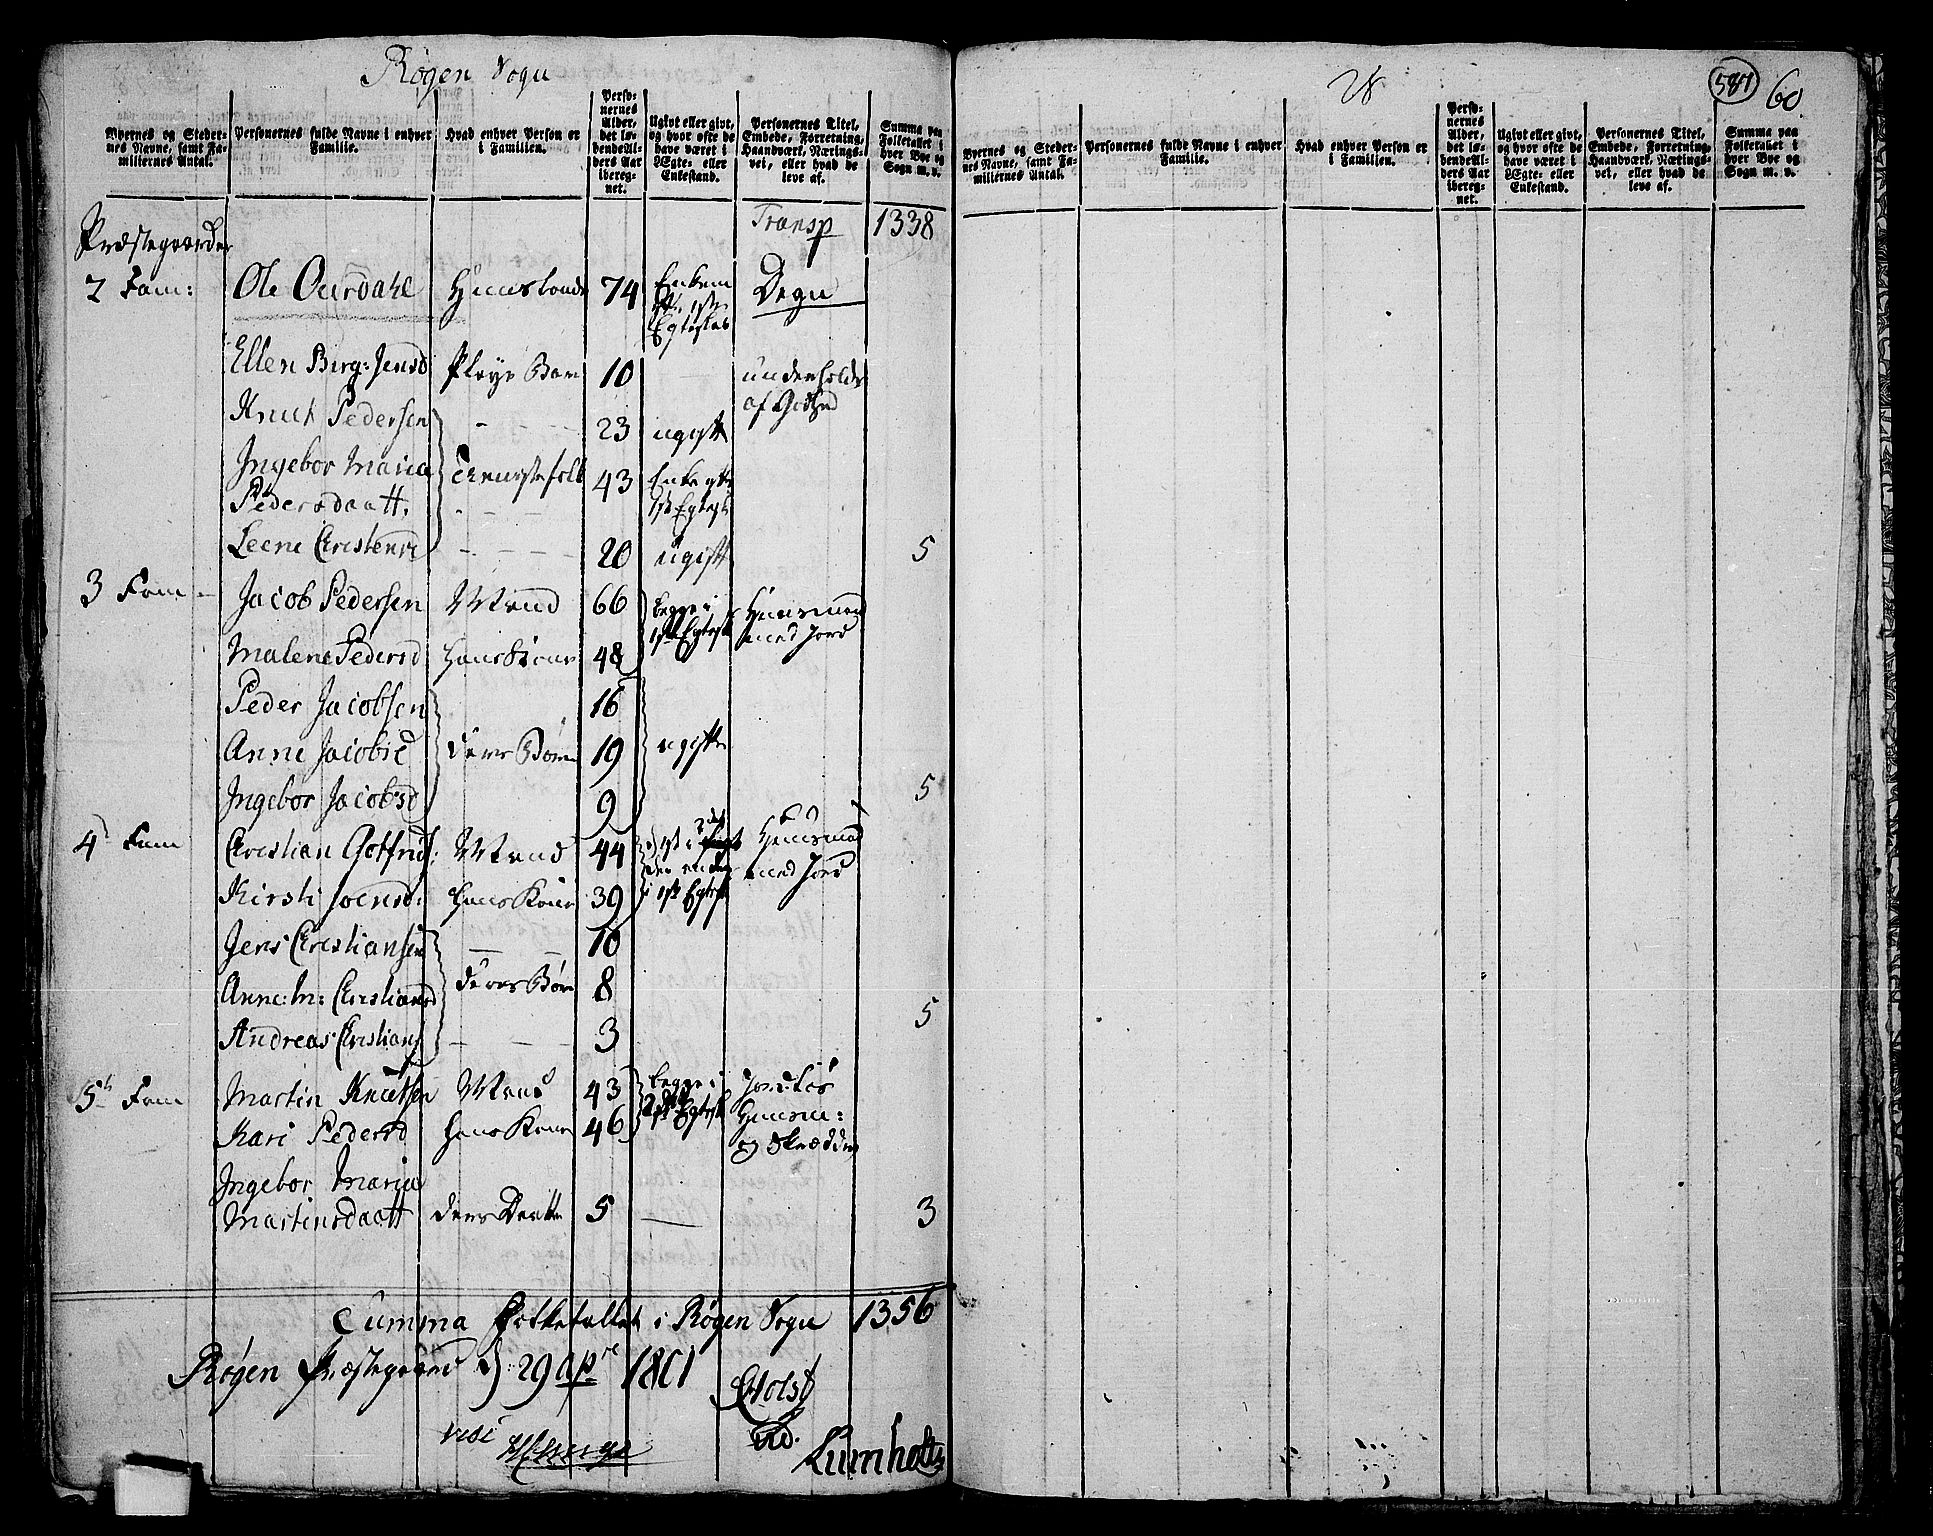 Røgen Sogn
Byernes og Stedernes Navne, samt Familiernes Antal.
Personernes fulde Navne i enhver Familie.
Hvad enhver Person er i Familien.
Personernes Alder, det løbende Alders Aar iberegnet.
Ugivt eller givt, og hvor ofte de have været i Ægte- eller Enkestand.
Personernes Titel, Embede, Forretning, Haandværk, Næringsvei, eller hvad de leve af.
Summa paa Folketallet i hver Bye og Sogn m. v.
Præstegaarden Transp 1338
2 Fam: Ole Ourdahl 74 Degn
Ellen Birg: Jensd 10 underholds
af
Knut Pedersen 23 ugift
Ingebor Maria Tienistefolk 43
Pedersdaatt.
Leene Christensd 20 ugift 5
3 Fam Jacob Pedersen Mand 66 begge i Huusmand
Malene Pedersd hans Kone 48 1ste Egtesk med Jord
Peder Jacobsen 16
Anne Jacobsd deres Børn 19 ugifte
Ingebor Jacobsd 9 5
4 Fam Christian Gotfrids: Mand 44 Huusmand
med Jord
Kirsti Joensd: hans Kone 39 i 1ste Egtesk
Jens Christiansen 10
Anne: M: Christiansd deres Børn 8
Andreas Christians 3 5
5 Fam Martin Knutsen Mand 43 begge i Jordløs
Kari Pedersd hans Kone 46 Huusm:
og Skrædder
Ingebor Maria
Martinsdaatt deres Daatter 5 3
Summa Folketallet i Røgen Sogn 1356
Røgen Præstegaard d: 29 Apr 1801
Holst
Lumholtz
28
581 60
Byernes og Stedernes Navne, samt Familiernes Antal.
Personernes fulde Navne i enhver Familie.
Hvad enhver Person er i Familien.
Personernes Alder, det løbende Alders Aar iberegnet.
Ugivt eller givt, og hvor ofte de have været i Ægte- eller Enkestand.
Personernes Titel, Embede, Forretning, Haandværk, Næringsvei, eller hvad de leve af.
Summa paa Folketallet i hver Bye og Sogn m. v.